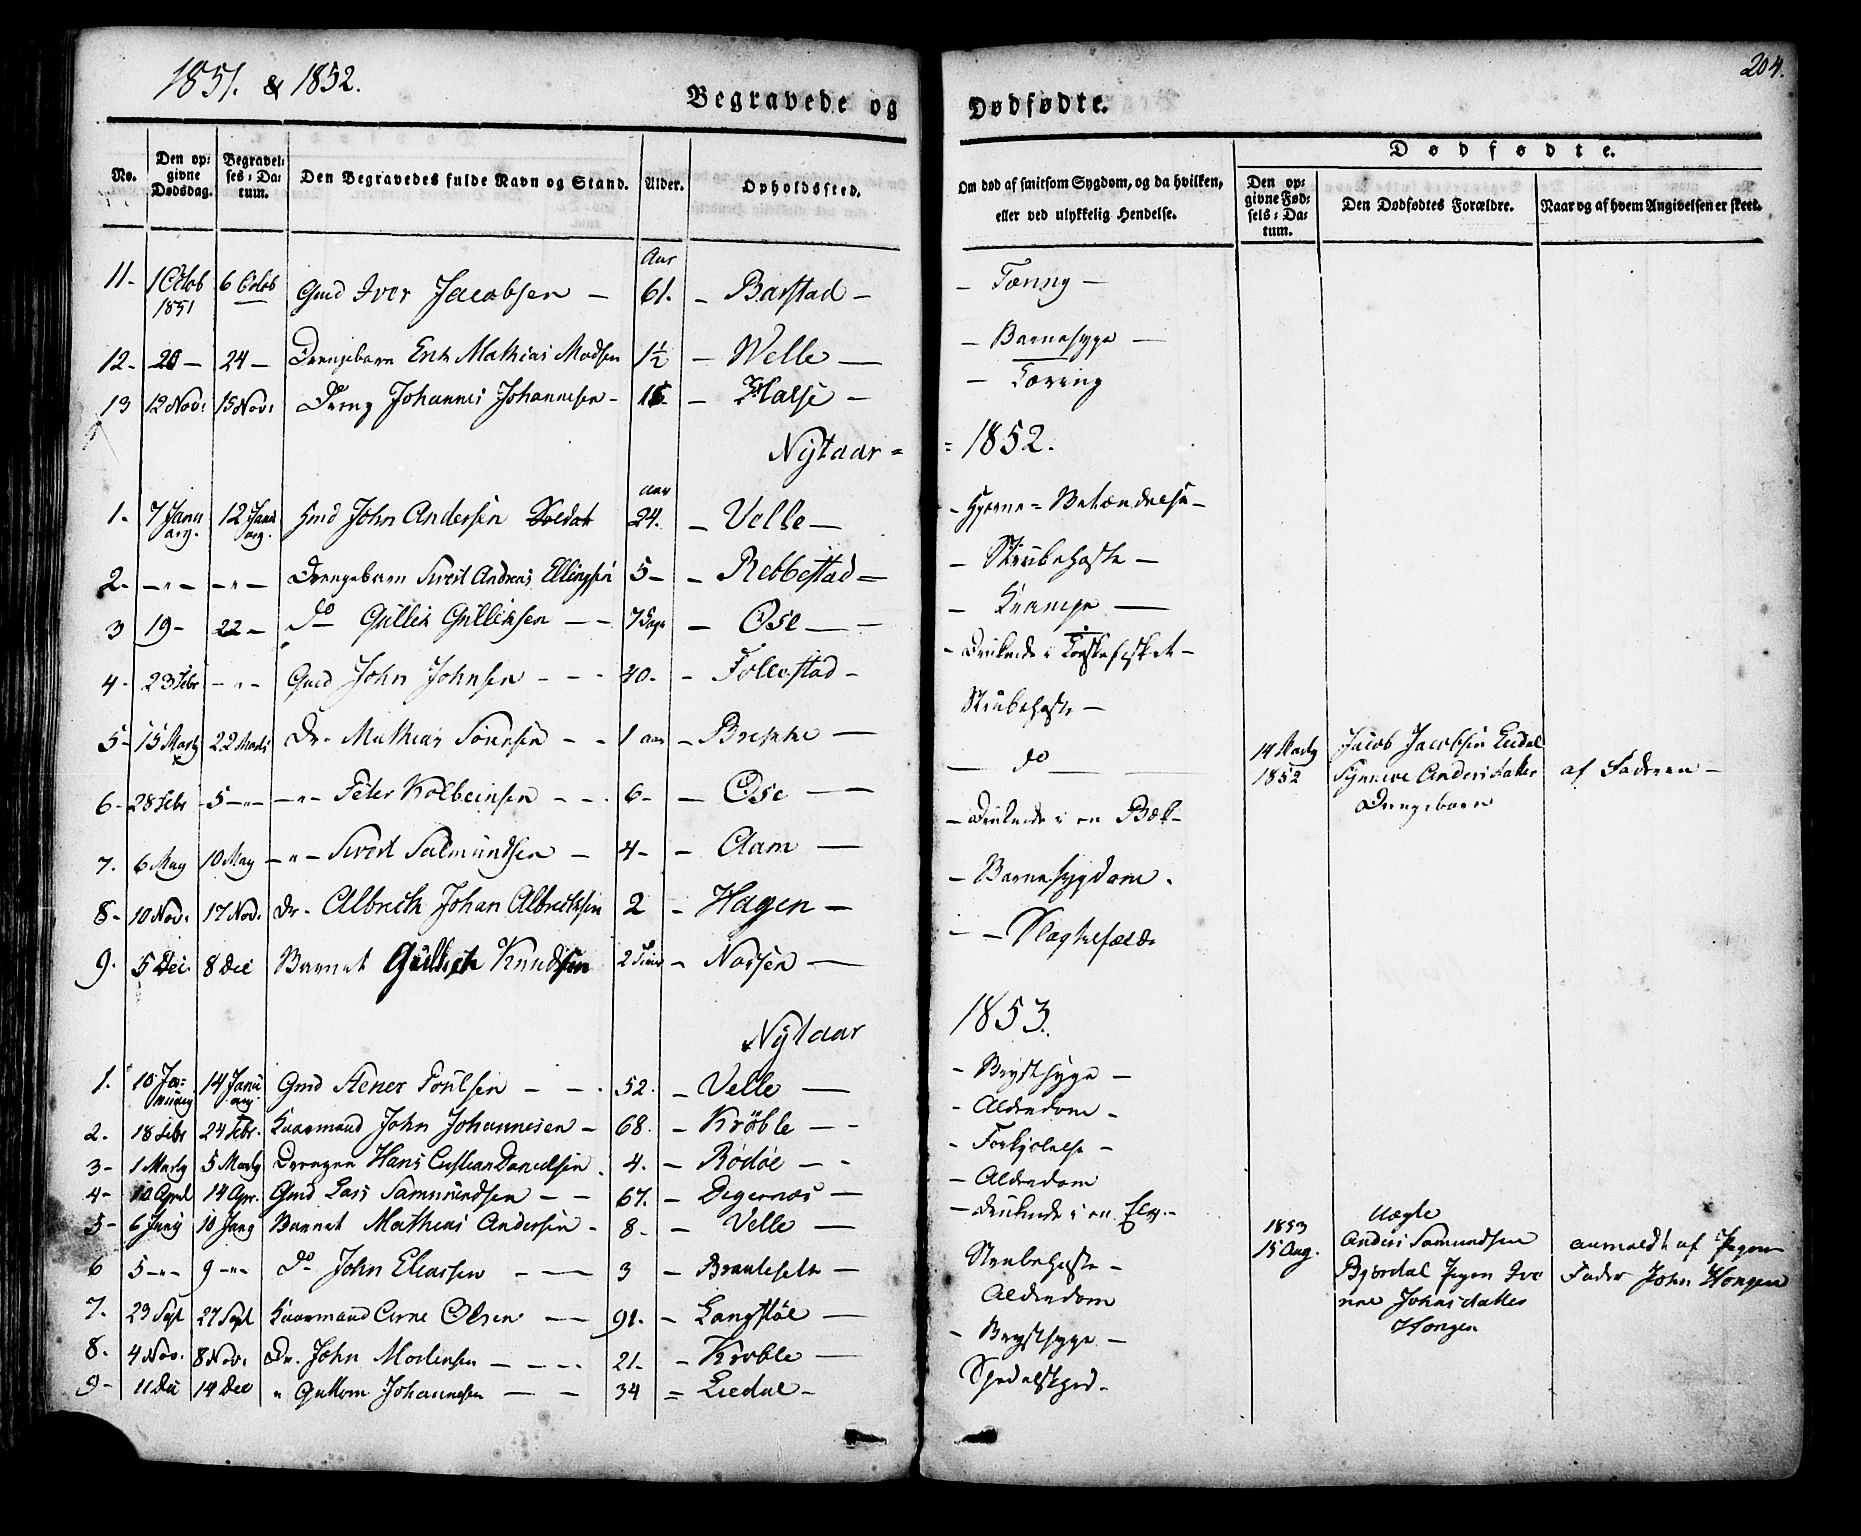 1851. & 1852.
204.
Begravede og Dødfødte.
No.
Den opgivne Dødsdag.
Begravelses-Datum.
Den Begravedes fulde Navn og Stand.
Alder.
Opholdssted.
Om død af smitsom Sygdom, og da hvilken, eller ved ulykkelig Hendelse.
Dødfødte.
Den opgivne Fødsels-Datum.
Den Dødfødtes Forældre.
Naar og af hvem Angivelsen er skeet.
Aar
11- 1 Octob 1851 6 Octob Gmd Iver Jacobsen - 61. - Barstad - - Tæring -
12- 20 - 24 - Drengebarn Mathias Madsen 1½ - Welle - - Barnesyge -
13 12 Nov: 15 Nov: Dreng Johannes Johannesen - - Halse - - Tæring
Nytaar = = 1852.
aar
1- 7 Janu ary. 12 Janu ary. Gmd John Andersen Soldat 24. - Velle - - Hjerne=Betændelse -
2- -"- -"- Drengebarn Sivert Andreas Ellingsen 5 - - Rebbestad = - Strubehoste -
3 19 - 22 - do Gullik Gulliksen - - 7 Dage - Ose - - - Krampe -
4- 23 Febr - " - Gmd John Johnsen - - - 40. - Follestad - - Druknede i Torskefisket -
5- 15 Marty 22 Marts Dr. Mathias - - 1 aar - Brekke - Strubehoste -
6- 28 Febr - 5 -"- -"- Peter Kolbeinsen - - - 6 - - Ose - - do -
7. 6 May 10 May - " - Sivert Salmundsen - 4 - - Aam - - Druknede i en Bæk -
8- 10 Nov. 17 Nov. Dr. Albrikt Johan Albriktsen 2 - Hagen - - Barnesygdom.
9. 5 Dec. 8 Dec Barnet Knudsen 2 - -
14 Marty 1852
Jacob Jacobsen Eidal
Synneve Andersdatter
Drengebarn
af Faderen -
Nytaar 1853.
1. 10 Ja= nuary 14 Janu ary. Gmd Stener Poulsen - - - 52. - Velle - - Brystsyge -
2. 18 Febr 24 Febr. Kaarmand John Johannesen - 68. - Krøble - - - Alderdom -
3- 1 Marty 5 Marty Drengen Hans Danielsen. 4. - Rødøe - - - Forkjølelse -
4- 10 April 14 Apr. Gmd Lars Samundsen - - 67. - Digernæs - - Alderdom
5- 6 Juny 10 Juny Barnet Mathias Andersen - 8. - Velle - - Druknede i en Elv. -
6 5 -"- 9 -"- Do John Eliassen - - 3 - - Strubehoste -
7. 23 Sept 27 Sept Kaarmand Arne Olsen - - 91. - Langstøl - Alderdom
8. 4 Nov. 8 Nov. Dr. John Mortensen - - - - 21. - Krøble - - Brystsyge -
9- 11 Dec 14 Dec " Guttorm Johannesen - - 34 = - Spedalskhed.
1853
15 Aug.
Uægte
Anders Samundsen
Bjørdal Pigen
Johnsdatter
Hongen
anmeldt af Pigens
Fader John Hongen